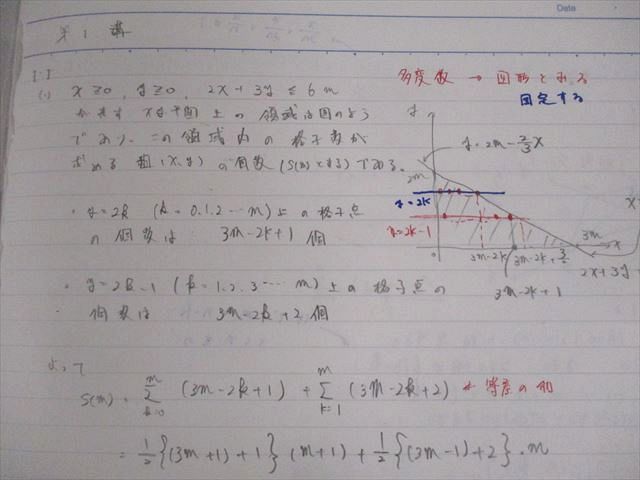 Date
第1講
1.1
多変数 → 図形とみる
固定する
(1) x≥0, y≥0, 2x+3y≤6m
が表す xy平面上の領域は図のよう
であり、この領域内の格子点が
求める組(x,y)の個数(S(m)とする)である.
y
y=2m-2/3x
2m
y=2k
y=2k-1
0
3m-2k
3m-2k+3/2
3m
x
2x+3y
3m-2k+1
・y=2k (k=0.1.2…m)上の格子点
の個数は 3m-2k+1 個
・y=2k-1 (k=1.2.3…m)上の格子点の
個数は 3m-2k+2 個
よって
S(m)= Σ[k=0→m] (3m-2k+1) + Σ[k=1→m] (3m-2k+2) ← 等差の和
= 1/2{(3m+1)+1}(m+1)+1/2{(3m-1)+2}・m